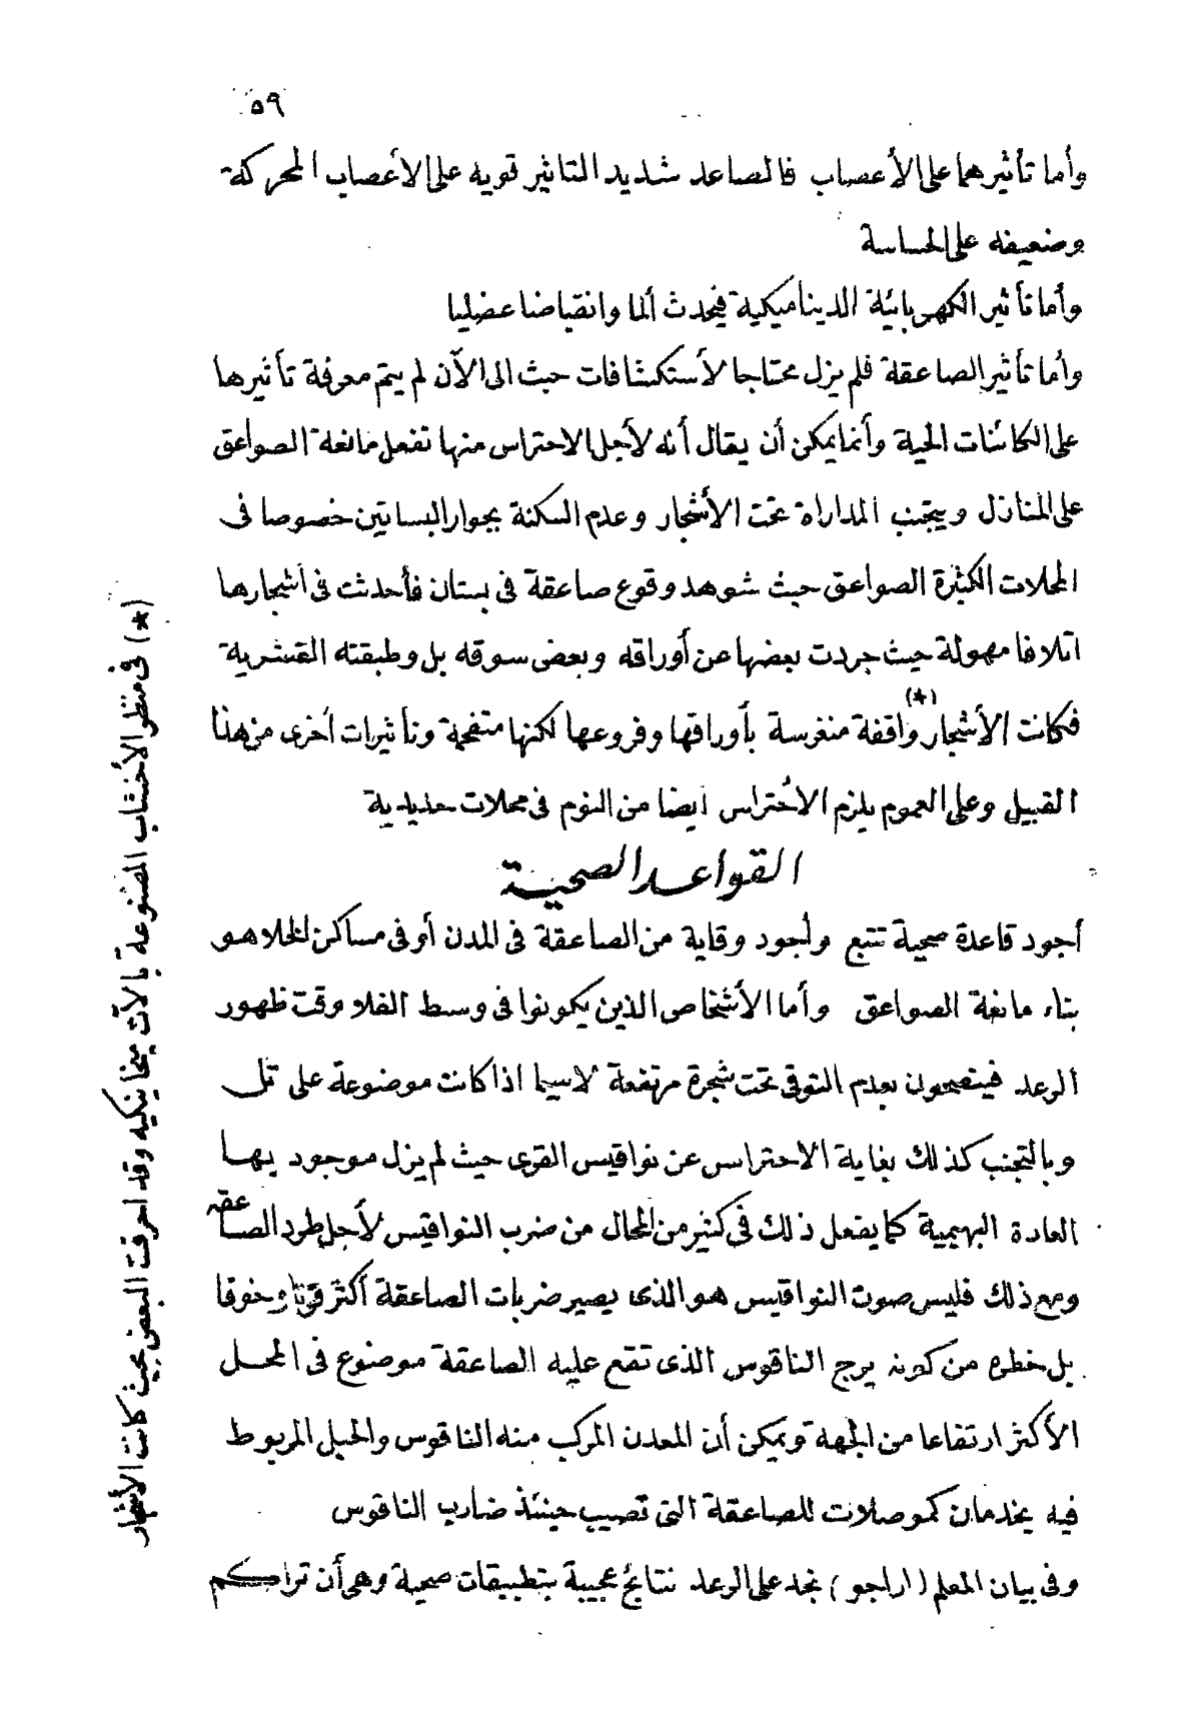 ٥٩
وأما تأثيرهما على الأعصاب فالصاعد شديد التاثير قويه على الاعصاب المحركة
وضعيفه على الحساسة
وأما تأثير الكهربائية الديناميكية فيحدث ألما وانقباضا عضليا
وأما تأثير الصاعقة فلم يزل محتاجا لأستكشافات حيث الى الآن لم يتم معرفة تأثيرها
على الكائنات الحية وأنما يمكن أن يقال أنه لأجل الاحتراس منها تفعل مانعة الصواعق
على المنازل ويتجنب المداراة تحت الأشجار وعدم السكنة بجوار البساتين خصوصا فى
المحلات الكثيرة الصواعق حيث شوهد وقوع صاعقة فى بستان فأحدثت فى أشجارها
اتلافا مهولة حيث جردت بعضها عن أوراقه وبعض سوقه بل وطبقته القشرية
فكانت الأشجار (*) واقفة منغرسة بأوراقها وفروعها لكنها متفحمة وتأثيرات أخرى من هذا
القبيل وعلى العموم يلزم الأحتراس أيضا من النوم فى محلات حديدية
القواعد الصحية
أجود قاعدة صحية تتبع وأجود وقاية من الصاعقة فى المدن أو فى مساكن الخلا هو
بناء مانعة الصواعق وأما الأشخاص الذين يكونوا فى وسط الفلا وقت ظهور
الرعد فينصحون بعدم التوقى تحت شجرة مرتفعة لاسيما اذا كانت موضوعة على تل
وبالتجنب كذلك بغاية الاحتراس عن نواقيس القرى حيث لم يزل موجود بها
العادة البهيمية كما يفعل ذلك فى كثير من المحال من ضرب النواقيس لأجل طرد الصاعقه
ومع ذلك فليس صوت النواقيس هو الذى يصير ضربات الصاعقة أكثر قوتا وخوفا
بل خطره من كونه برج الناقوس الذى تقع عليه الصاعقة موضوع فى المحل
الأكثر ارتفاعا من الجهة ويمكن أن المعدن المركب منه الناقوس والحبل المربوط
فيه يخدمان كموصلات للصاعقة التى تصيب حينئذ ضارب الناقوس
وفى بيان المعلم (اراجو) نجد على الرعد نتائج عجيبة بتطبيقات صحية وهى أن تراكم
(*) فى منظر الأخشاب المصنوعة بالآت ميخانيكيه وقد احرقت البعض بحيث كانت الأشجار